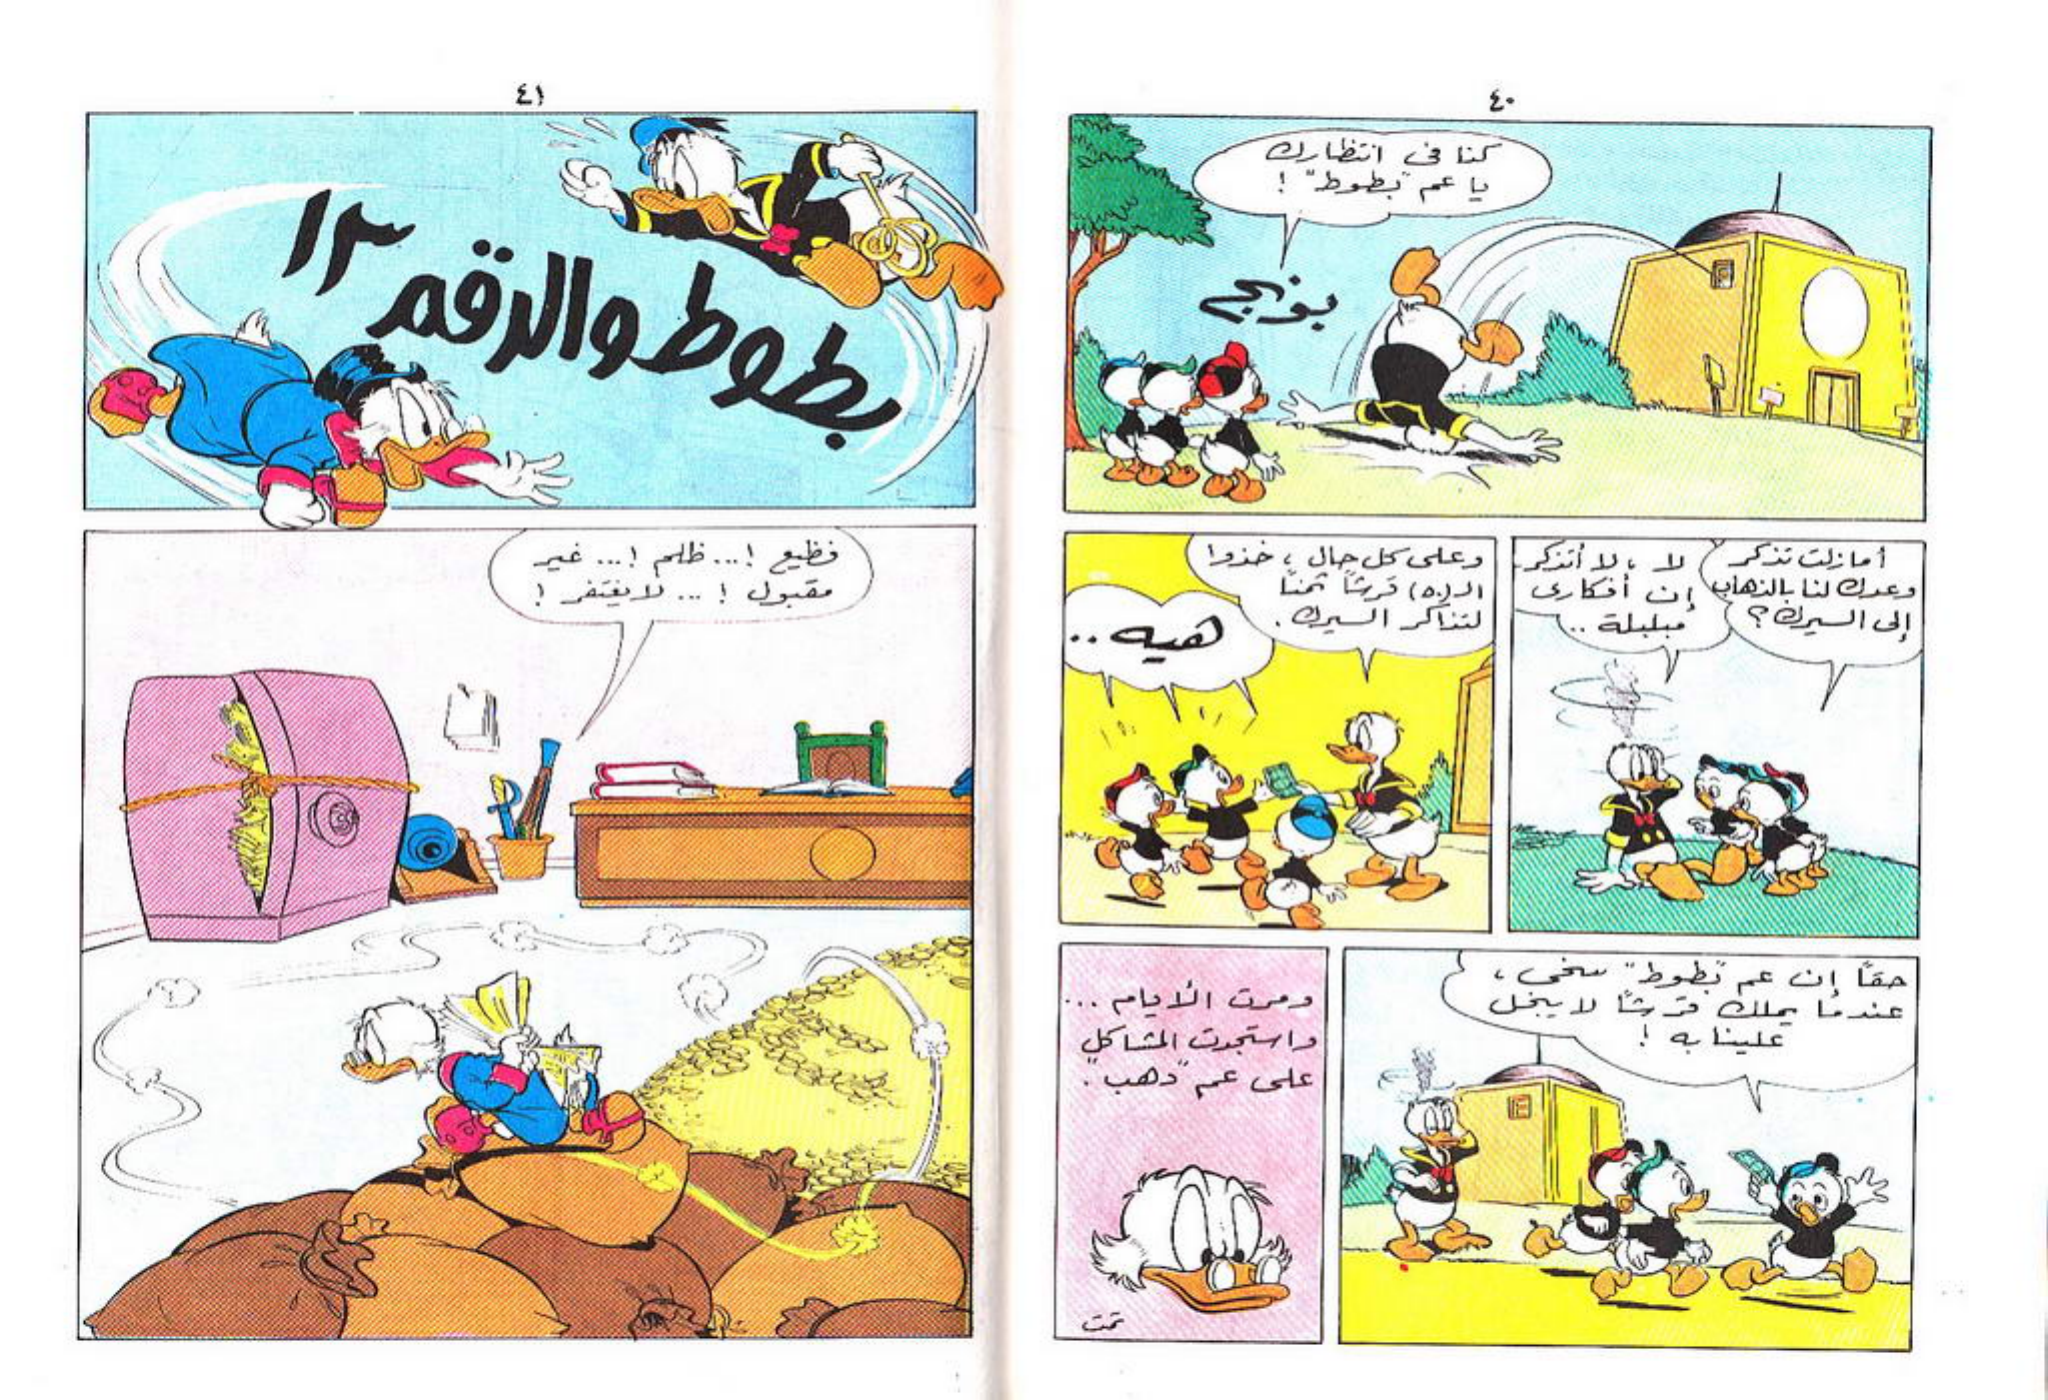 ٤٠
كنا فى انتظارك
يا عم "بطوط" !
بونج
أمازلت تذكر
وعدك لنا بالذهاب
إلى السيرك ؟
لا ، لا أتذكر.
إن أفكارى
مبلبلة ..
وعلى كل حال ، خذوا
الـ(٥٠) قرشاً ثمناً
لتذاكر السيرك .
هيه ..
حقاً إن عم "بطوط" سخى ،
عندما يملك قرشاً لا يبخل
علينا به !
ومرت الأيام ...
واستجدت المشاكل
على عم "دهب".
تمت
٤١
بطوط والرقم ١٣
فظيع !... ظلم !... غير
مقبول ! ... لا يغتفر !